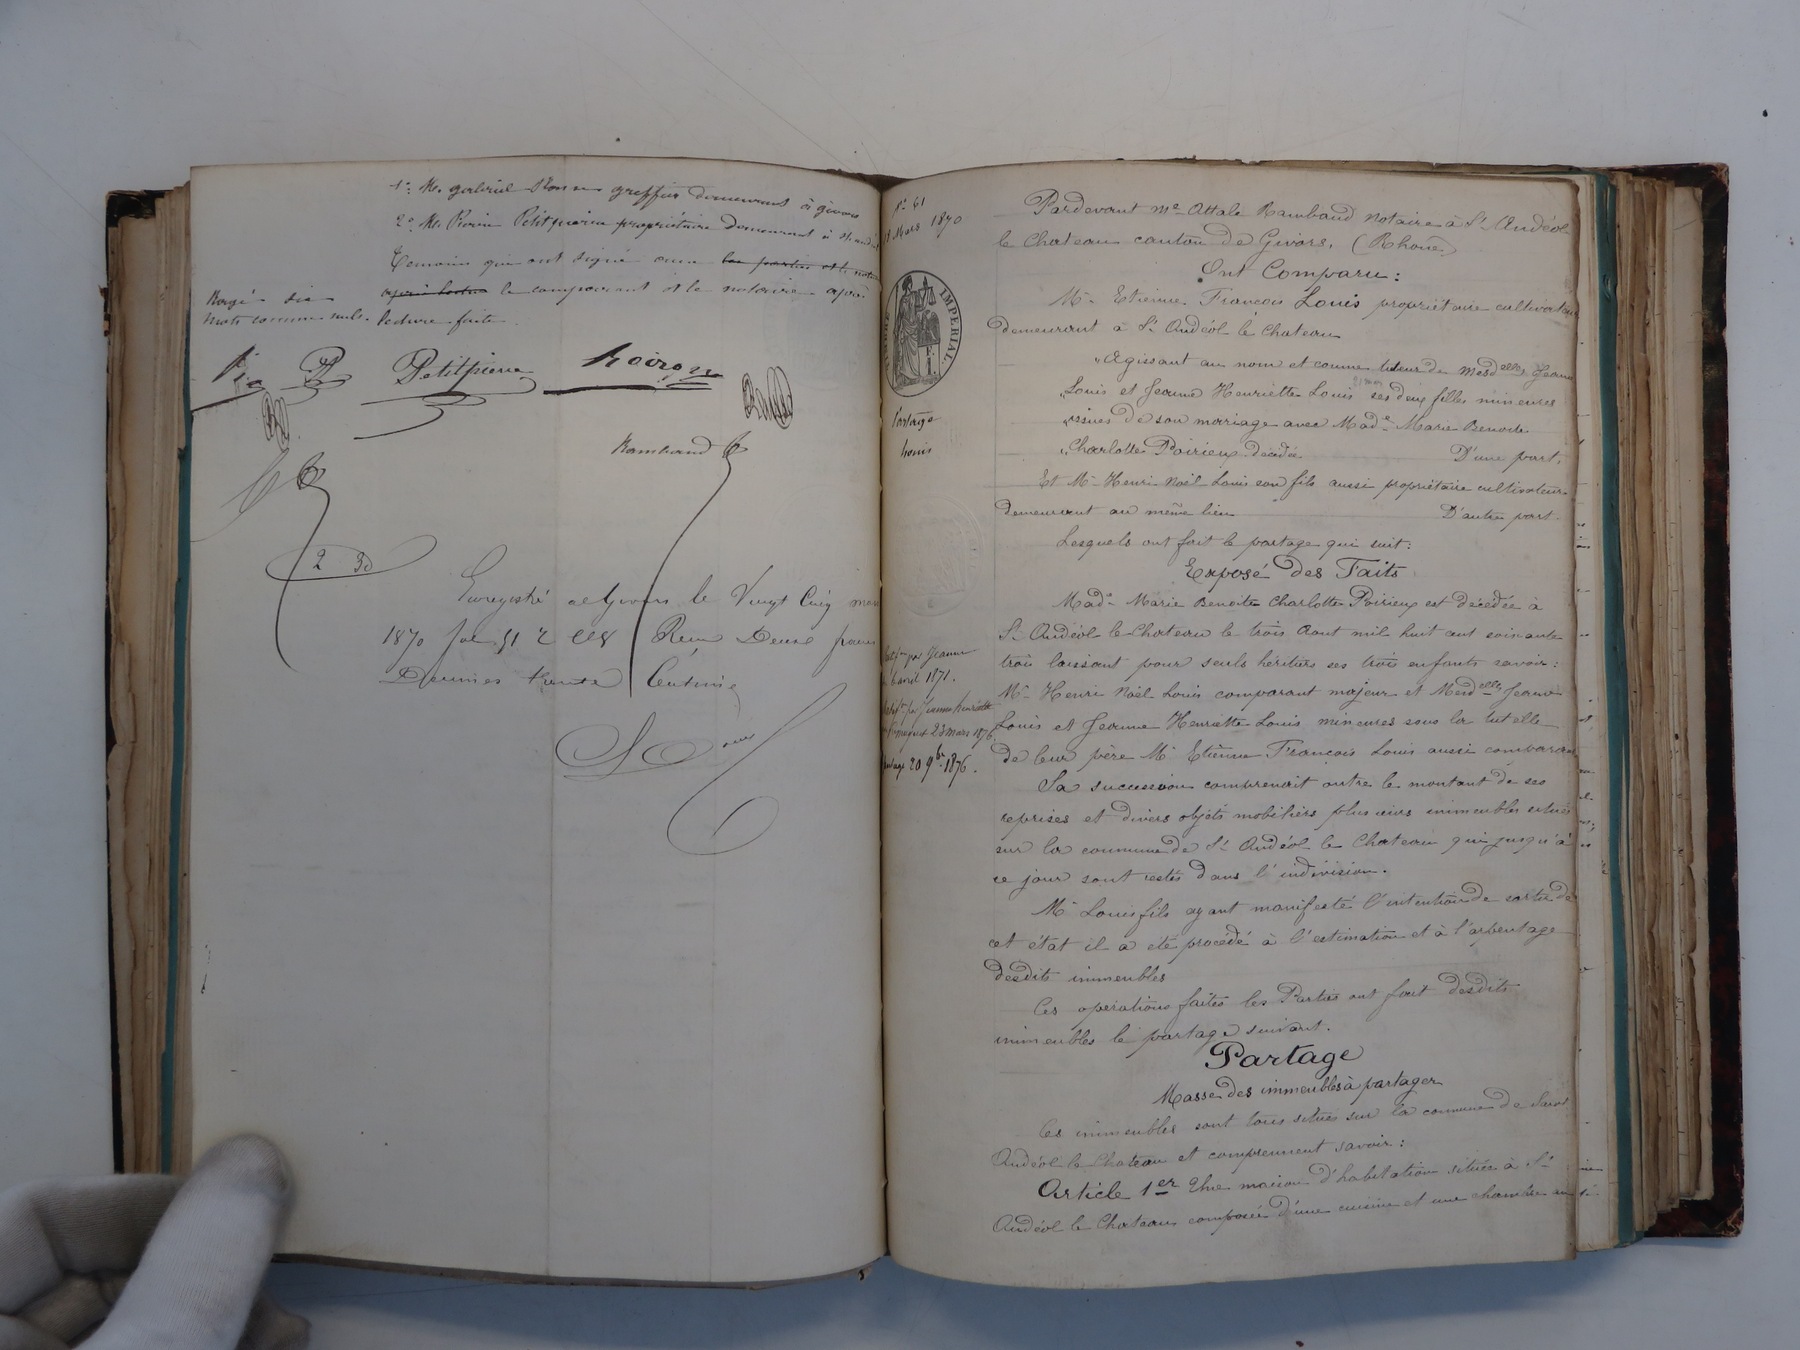 1° M. gabriel greffier demeurant à givors
2° M. Pierin Petitpierre propriétaire demeurant à St andéol
Temoins qui ont signé avec les parties et le notaire
après lecture le comparant et le notaire après
lecture faite.
Rayé six
mots comme nuls.
Petitpierre
Rambaud
2 30
Enregistré à Givors le Vingt Cinq mars
1870 fol 51 Reçu Deux francs
Decimes trente Centimes
N° 61
Mars 1870
TIMBRE IMPERIAL
1 F.
Partage
Louis
par Jeanne
avril 1871.
par Jeanne henriette
23 mars 1876.
20 9bre 1876.
Pardevant Me Attale Rambaud Notaire à St Andéol
le Chateau canton de Givors, (Rhone)
Ont Comparu:
Mr Etienne François Louis propriétaire cultivateur
demeurant à St Andéol le Chateau
"Agissant au nom et comme tuteur de Mesdelles Jeanne
"Louis et Jeanne Henriette Louis ses deux filles mineures
"issues de son mariage avec Made Marie Benoite
"Charlotte Poirieux décédée D'une part,
Et Mr Henri Noël Louis son fils aussi propriétaire cultivateur
demeurant au même lieu D'autre part.
Lesquels ont fait le partage qui suit:
Exposé des Faits
Made Marie Benoite Charlotte Poirieux est décédée à
St Andéol le Chateau le trois Aout mil huit cent soixante
trois laissant pour seuls héritiers ses trois enfants savoir:
Mr Henri Noël Louis comparant majeur et Mesdelles Jeanne
Louis et Jeanne Henriette Louis mineures sous la tutelle
de leur père Mr Etienne François Louis aussi comparant
Sa succession comprenait outre le montant de ses
reprises et divers objets mobiliers plusieurs immeubles situés
sur la commune de St Andéol le Chateau qui jusqu'à
ce jour sont restés dans l'indivision.
Mr Louis fils ayant manifesté l'intention de sortir de
cet état il a été procédé à l'estimation et à l'arpentage
desdits immeubles
Ces opérations faites les Parties ont fait desdits
immeubles le partage suivant.
Partage
Masse des immeubles à partager
Ces immeubles sont tous situés sur la commune de Saint
Andéol le Chateau et comprennent savoir:
Article 1er Une maison d'habitation située à St
Andéol le Chateau composée d'une cuisine et une chambre au